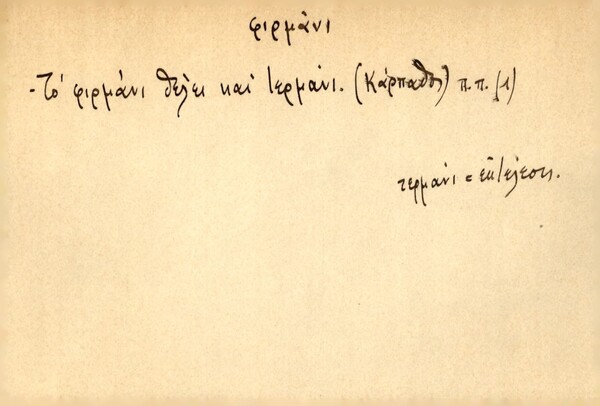 φιρμάνι
- Το φιρμάνι θέλει καί τερμάνι. (Κάρπαθος) π.π. (1)
τερμάνι = εκτέλεσις.